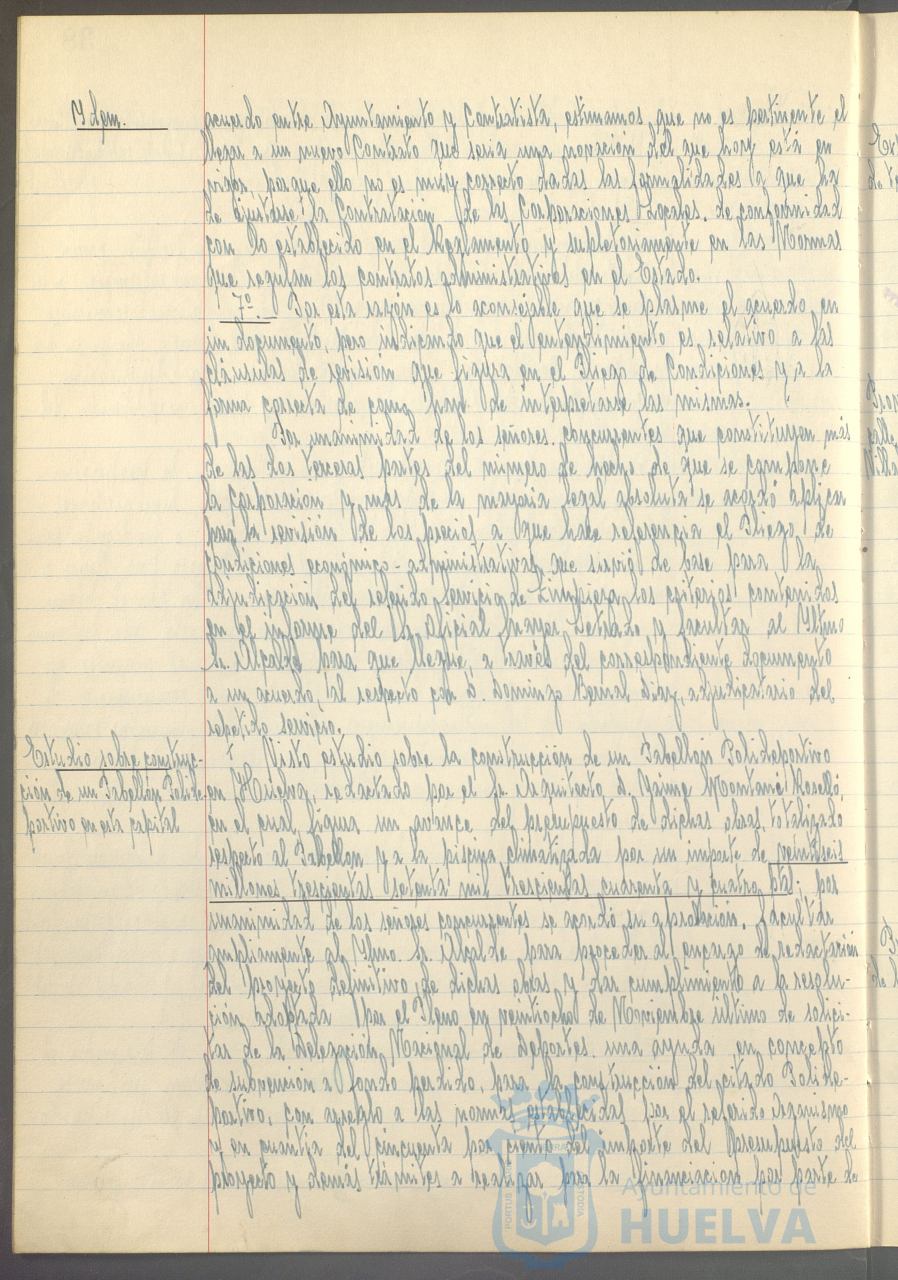 Ydem.
acuerdo entre Ayuntamiento y Contratista, estimamos que no es pertinente el
llegar a un nuevo Contrato que seria una novación del que hoy está en
vigor, porque ello no es muy correcto dadas las formalidades a que ha
de ajustarse la Contratación de las Corporaciones Locales, de conformidad
con lo establecido en el Reglamento y supletoriamente en las Normas
que regulan los contratos administrativos en el Estado.
7º.- Por esta razón es lo aconsejable que se plasme el acuerdo en
un documento, pero indicando que el entendimiento es relativo a las
cláusulas de revisión que figura en el Pliego de Condiciones y a la
forma correcta de como han de interpretarse las mismas.
Por unanimidad de los señores concurrentes que constituyen más
de las dos terceras partes del número de hecho de que se compone
la Corporación y más de la mayoría legal absoluta se acordó aplicar
para la revisión de los precios a que hace referencia el Pliego de
Condiciones económico-administrativas que sirvió de base para la
adjudicación del referido Servicio de Limpieza, los criterios contenidos
en el informe del Sr. Oficial Mayor Letrado y facultar al Yltmo
Sr. Alcalde para que llegue, a través del correspondiente documento
a un acuerdo al respecto con D. Domingo Bernal Diaz, adjudicatario del
repetido servicio.
Estudio sobre construc-
ción de un Pabellón Polide-
portivo en esta capital
Visto estudio sobre la construcción de un Pabellón Polideportivo
en Huelva, redactado por el Sr. Arquitecto D. Jaime Montané Roselló,
en el cual figura un avance del presupuesto de dichas obras, totalizado
respecto al Pabellón y a la piscina climatizada por un importe de veintiseis
millones trescientas setenta mil trescientas cuarenta y cuatro pts; por
unanimidad de los señores concurrentes se acordó su aprobación. Facultar
ampliamente al Yltmo. Sr. Alcalde para proceder al encargo de redactación
del proyecto definitivo de dichas obras y dar cumplimiento a la resolu-
ción adoptada por el Pleno en veintiocho de Noviembre último de solici-
tar de la Delegación Nacional de Deportes una ayuda en concepto
de subvención a fondo perdido, para la construcción del citado Polide-
portivo, con arreglo a las normas establecidas por el referido Organismo
y en cuantía del cincuenta por ciento del importe del Presupuesto del
proyecto y demás trámites a realizar para la financiación por parte de
Ayuntamiento de
HUELVA